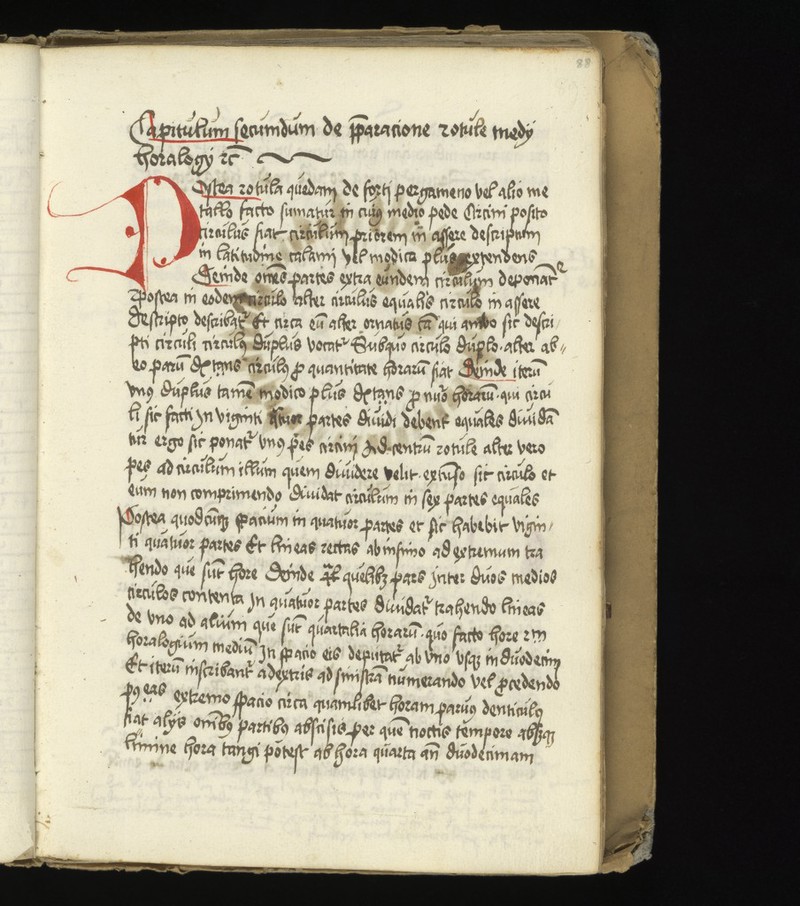 88
Capitulum secundum de p̄paracione rotule medy
horalogy rc̄
Postea rotula quedam de forti pergameno vel alio me
tallo facto sumatur in cuiꝰ medio pede Circini posito
circulus fiat circulum priorem in assere descriptum
in latitudine calami vel modica plus extendens
Deinde om̄es partes extra eundem circulum deponat᷑
Postea in eodem circulo alter circulus equalis circulo in assere
descripto describat᷑ Et circa eū alter ornatus qui ambo sic descri
pti circuli circulꝰ duplus vocat᷑ Subquo circulo duplo alter ab
eo parum distans circulꝰ ꝓ quantitate horarū fiat Deinde iterū
vnꝰ duplus tamē modico plus distans ꝓ nūo horarū qui circu
li sic facti In viginti quatuor partes diuidi debent equales diuidā
tur ergo sic ponat᷑ vnꝰ pes circini Ad centrū rotule alter vero
pes ad circulum illum quem diuidere velit extenso sic circulo et
eum non comprimendo diuidat circulum in sex partes equales
Postea quodcūqꝫ spacium in quatuor partes et sic habebit vigin
ti quatuor partes Et lineas rectas ab infimo ad extremum tra
hendo que sūt hore Deinde quelibꝫ pars inter duos medios
circulos contenta In quatuor partes diuidat᷑ trahendo lineas
de vno ad alium que sūt quartalia horarū quo facto hore
horalogium mediū In spacio eis deputat᷑ ab vno vsqꝫ in duodecim
Et iterū inscribant᷑ adextris ad sinistrā numerando vel ꝓcedendo
extremo spacio circa quamlibet horam paruꝰ denticulꝰ
fiat alys om̄ibꝰ partibꝰ abscisis per quē noctis tempore absqꝫ
limine hora tangi potest ab hora quarta an̄ duodecimam